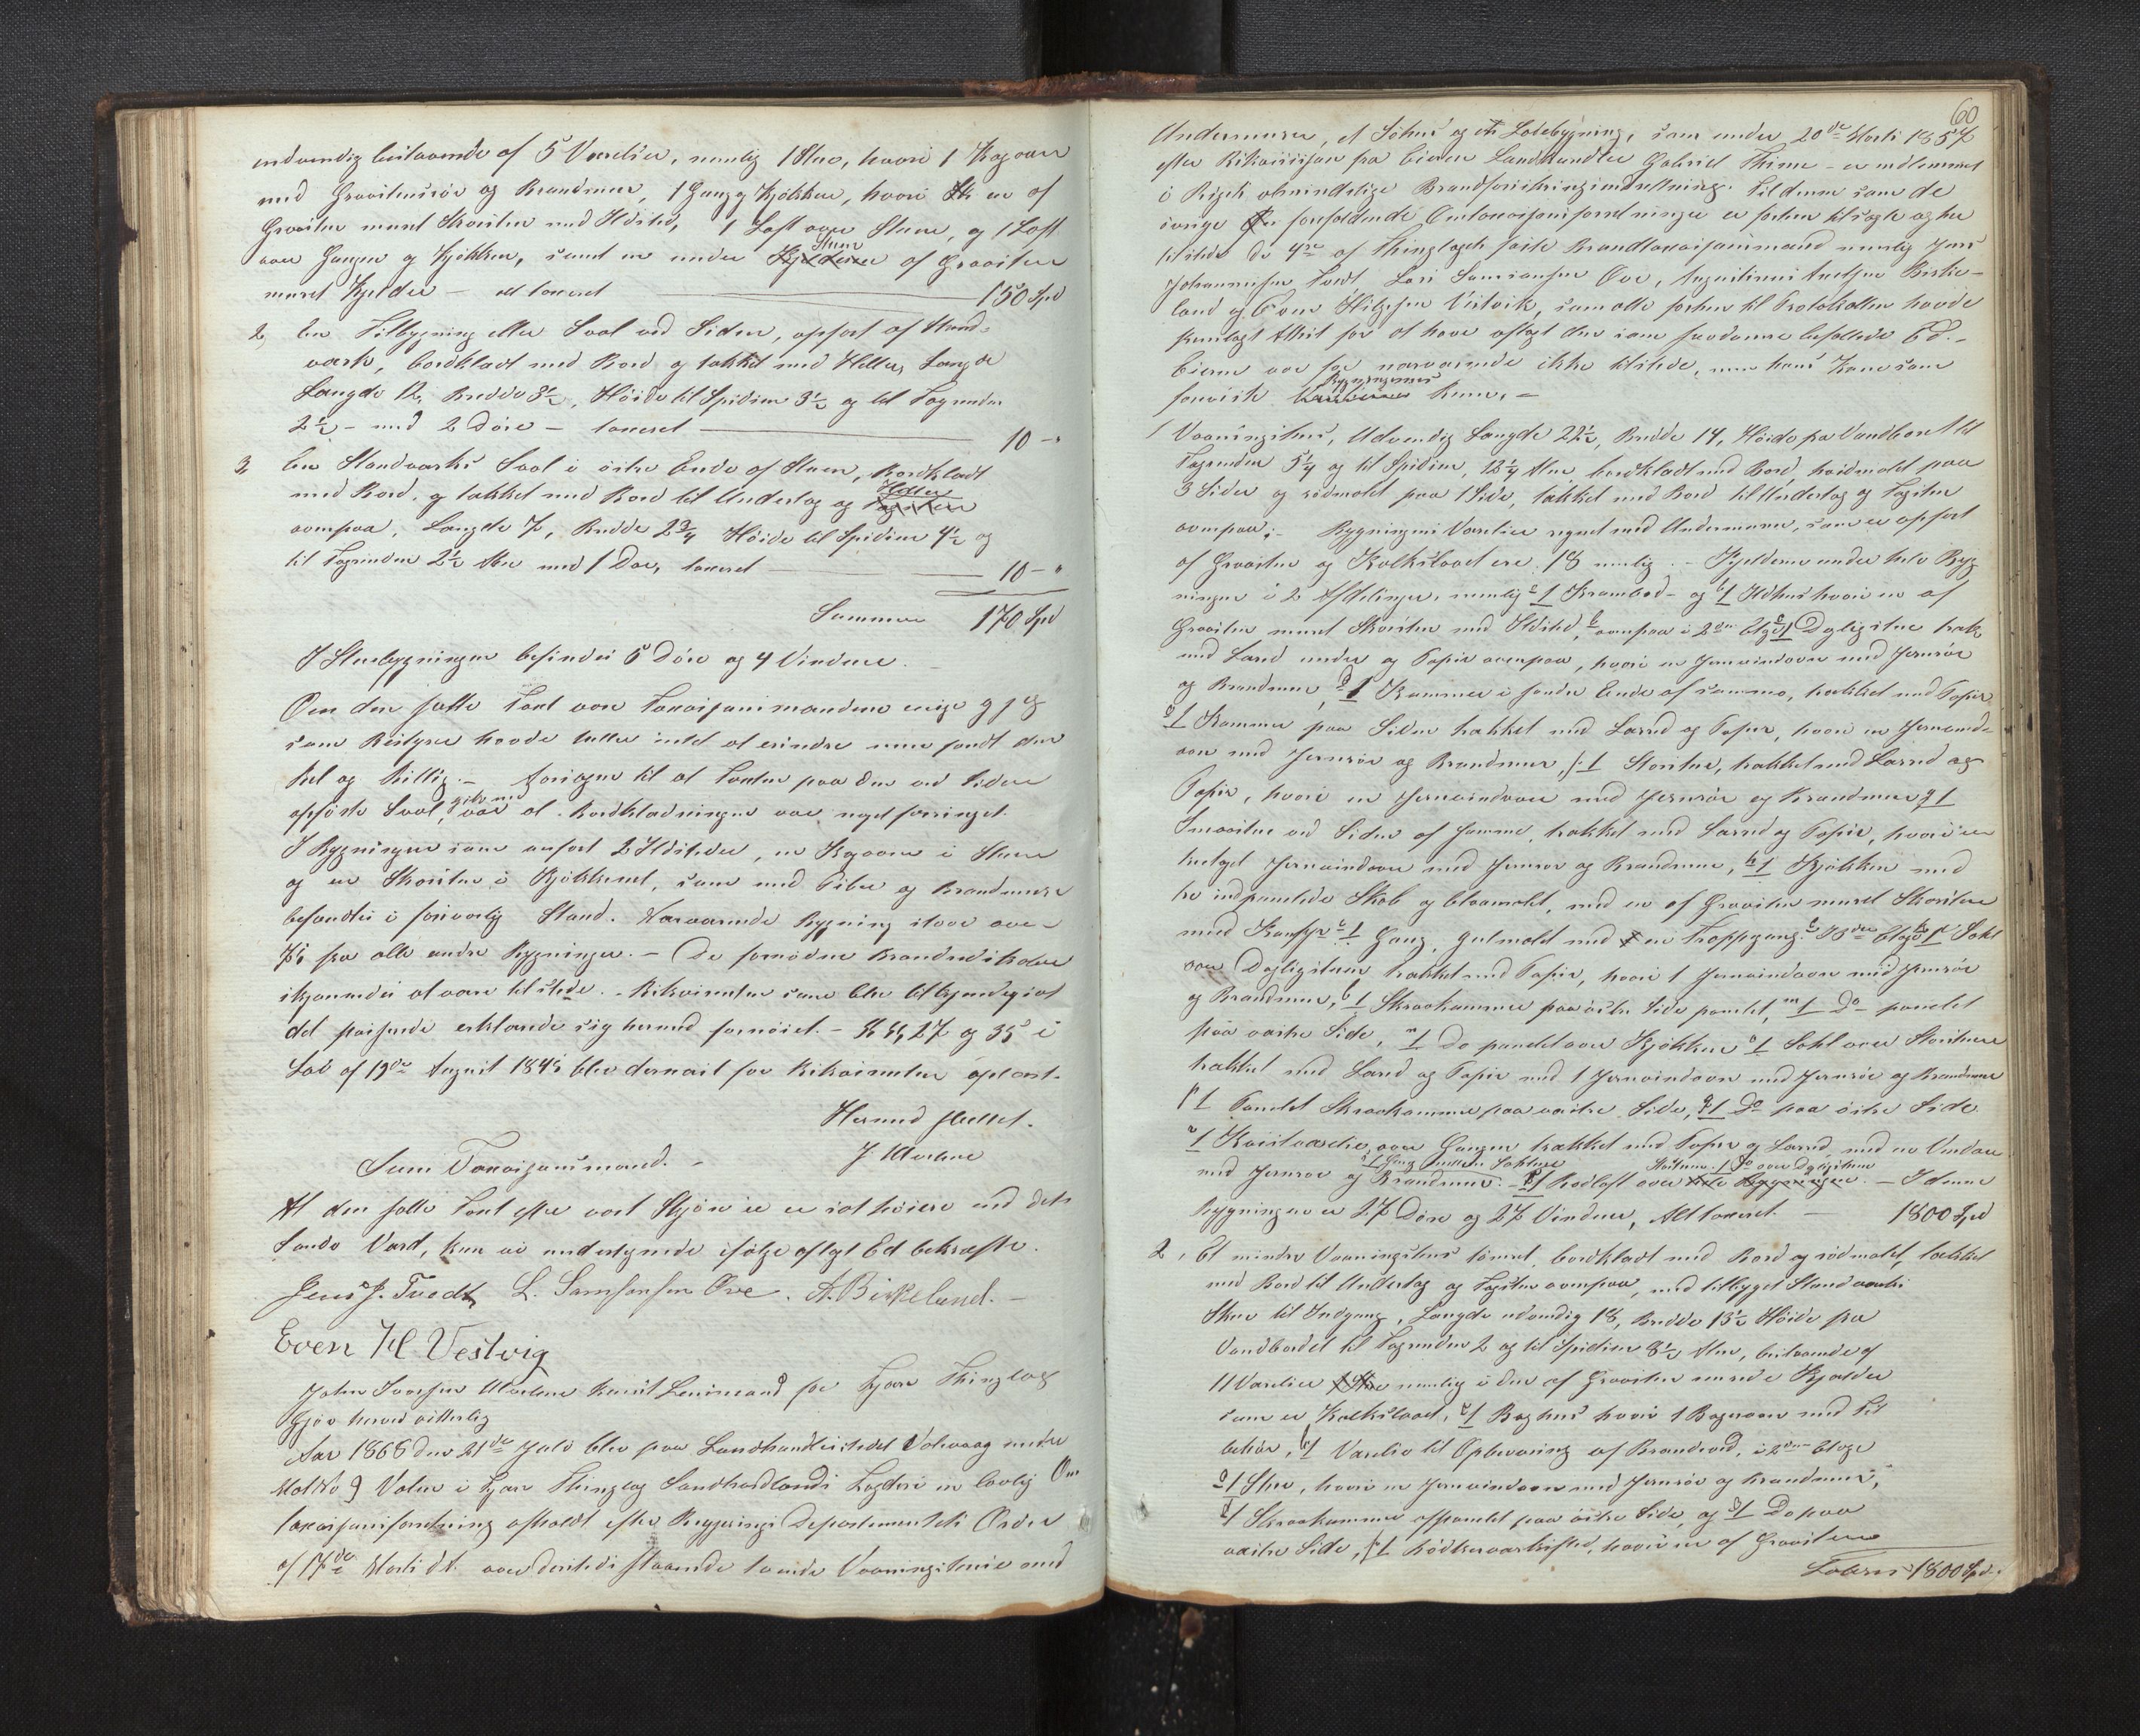 indvendig bestaaende af 5 Værelser, nemlig 1 Stue, hvori 1 Kogovn
med Graasteensrör og Brandmuur, 1 Gang og Kjökken, hvori en af
Graasten muret Skorsten med Ildsted, 1 Loft over Stuen, og 1 Loft
over Gangen og Kjökken, samt en under Stuen af Graasten
muret Kjelder – alt taxeret 150 Spd
2, En Tilbygning eller Sval ved Siden, opfört af Stand-
værk, bordklædt med Bord og tækket med Heller, Længde
Længde 12, Bredde 3½, Höide til Spidsen 3½ og til Tagrenden
2½ – med 2 Döre – taxeret 10 – "
3 En Standværks Sval i östre Ende af Stuen, Bordklædt
med Bord, og tækket med Bord til Undertag og Heller
ovenpaa, Længde 7, Bredde 2¾ Höide til Spidsen 4½ og
til Tagrenden 2½ Alen med 1 Dör, taxeret 10 – "
Summa 170 Spd
I Stuebygningen befindes 5 Döre og 4 Vinduer.
Om den satte Taxt vare Taxasjonsmændene enige og jeg
som Bestyrer havde heller intet at erindre men fandt den
ret og billig. – Aarsagen til at Taxten paa den ved Siden
opförte Sval, gik ned var at Bordklædningen var noget forringet.
I Bygningen som anfört 2 Ildsteder, en Kogovn i Stuen
og en Skorsten i Kjökkenet, som med Piber og Brandmure
befandtes i forsvarlig Stand. Nærværende Bygning staar
fra alle andre Bygninger. – De fornödne Brandredskaber
skjönnedes at være tilstede. – Rekvirenten som blev tilkjendegivet
det passerede erklærede sig hermed fornöiet. – §§ 27 og 35 i
Lov af 19de August 1845 blev dernæst for Rekvirenten oplæst.
Hermed sluttet.
J. Mælene
Som Taxasjonsmænd. –
At den satte Taxt efter vort Skjön ei er sat höiere end dets
sande Værd, kan vi undertegnede ifölge aflagt Ed bekræfte.
Jens J. Tvedt L. Samsonsen Öve. A. Birkeland. –
Even H Vestvig
John Iversen Mælene Const Lensmand for Thinglag
Gjör herved vitterlig
Aar 1868 den 21de Juli blev paa Landhandlerstedet Valevaag under
Mat No 9 Valen i Thinglag Söndhordlands Fogderi en lovlig Om
taxasjonsforretning afholdt efter Regjerings Departementets Order
af 17de Marts d.A. over dersteds staaende tvende Vaaningshuse med
60
Undermure, et Söhuus og en Ladebygning, som under 20de Marts 1857
efter Rekvisisjon fra Eieren Landhandler Gabriel Thime – er indlemmet
i Rigets almindelige Brandforsikringsindretning. Til denne som de
övrige forefaldende Omtaxasjonsforretninger er forhen tilsagte og her
tilstede de 4re af Thinglagets faste Brandtaxasjonsmænd nemlig Jens
Johannessen Tvedt, Lars Samsonsen Öve, Augustinus Birke-
land og Even Helgesen Vestvik, som alle forhen til Protokollen havde
fremlagt Attest for at have aflagt den som saadanne befalede Ed. –
Eieren var for nærværende ikke tilstede, men hans Kone som
foreviste Bygningerne
1 Vaaningshus, Udvendig Længde 22½, Bredde 14, Höide fra Vandbordet til
Tagrenden 5¼ og til Spidsen 12¼ Alen bordklædt med Bord, hvidmalet paa
3 Sider og rödmalet paa 1 Side, tækket med Bord til Undertag og Tagsten
ovenpaa; – Bygningens Værelser regnet med Undermuren, som er opfört
af Graasten og Kalkslaaet ere 18 nemlig. – Kjelderen under hele Byg
ningen i 2 Afdelinger, nemlig a 1 Krambod – og b 1 Ildhus hvori en af
Graasten muret Skorsten med Ildsted, ovenpaa i 2den Etage c 1 Dagligstue trak
med Lærred under og Papir ovenpaa, hvori en Jernvindovn med Jernrör
og Brandmur, d 1 Kammer i söndre Ende af samme, trækket med Papir
e 1 Kammer paa Siden trækket med Lærred og Papir, hvori en Jernvind-
ovn med Jernrör og Brandmur, f 1 Storstue, trækket med Lærred og
Papir, hvori en Jernvindovn med Jernrör og Brandmur g 1
Smaastue ved Siden af samme, trækket med Lærred og Papir, hvori en
Jernvindovn med Jernrör og Brandmur, h 1 Kjökken med
to indpanelede Skab og blaamalet, med en af Graasten muret Skorsten
med i 1 Gang, gulmalet med en Trappegang. 3die Etage k 1 Sahl
over Dagligstuen, trækket med Papir, hvori 1 Jernvindovn med Jernrör
og Brandmur, l 1 Skraakammer paa östre Side panelet, m 1 Do panelet
paa vestre Side, n 1 Do panelet over Kjökken o 1 Sahl over Storstuen
trækket med Lærred og Papir med 1 Jernvindovn med Jernrör og Brandmur
p 1 Panelet Skraakammer paa vestre Side, q 1 Do paa östre Side
r 1 Kvistværelse over Gangen trækket med Papir og Lærred, med en Vindovn
med Jernrör og Brandmur. s 1 Gang mellem Sahlene t 1 Mörkloft over Storstuen. 1 Do over Dagligstuen – I denne
Bygningen er 27 Döre og 27 Vinduer, Alt taxeret – 1800 Spd
2, Et mindre Vaaningshus tömret, bordklædt med Bord og rödmalet, tækket
med Bord til Undertag og Tagsten ovenpaa, med tilbygget Standværks
Skur til Indgang, Længde udvendig 18, Bredde 13½ Höide fra
Vandbordet til Tagrenden 2 og til Spidsen 8½ Alen, bestaaende af
11 Værelser nemlig i den af Graasten murede Kjelder
som er Kalkslaaet, a 1 Baghus hvori 1 Bagerovn med Til
behör, b 1 Værelse til Opbevaring af Brændeved, i 2den Etage
c 1 Stue, hvori en Jernvindovn med Jernrör og Brandmur,
d 1 Skraakammer afpanelet paa östre Side, og e 1 Do paa
vestre Side, f 1 hvori en af Graasten
Lateris 1800 Spd.